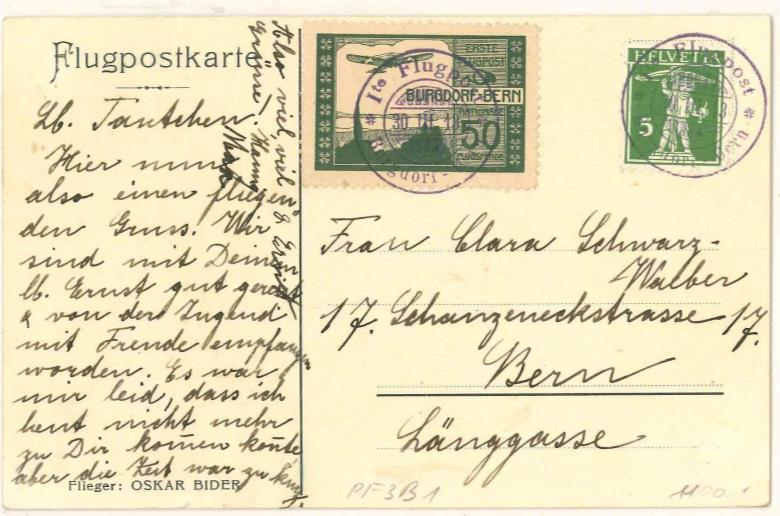 Flugpostkarte
Lb. Tantchen!
Hier nun
also einen fliegen
den Gruss. Wir
sind mit Deinem
lb. Ernst gut gereist
& von der Jugend
mit Freude empfangen
worden. Es war
mir leid, dass ich
heut nicht mehr
zu Dir kom̄en kon̄te
aber die Zeit war zu kurz.
Also viel, viel
Grüsse!
Flieger: OSKAR BIDER
ERSTE
FLUGPOST
BURGDORF-BERN
NATIONALE
50
FLUGSPENDE
Ite Flugpost
30 III 1
Burgdorf
HELVETIA
5
Flugpost
Bern
Frau Clara Schwarz-
Walber
17. Schanzeneckstrasse 17.
Bern
Länggasse
PF3B1
1100.-